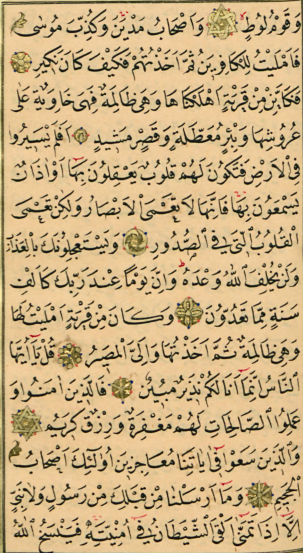 وَقَوْمُ لُوطٍ وَاَصْحَابُ مَدْيَنَ وَكُذِّبَ مُوسٰى
فَاَمْلَيْتُ لِلْكَافِرِينَ ثُمَّ اَخَذْتُهُمْ فَكَيْفَ كَانَ نَكِيرِ
فَكَاَيِّنْ مِنْ قَرْيَةٍ اَهْلَكْنَاهَا وَهِىَ ظَالِمَةٌ فَهِىَ خَاوِيَةٌ عَلٰى
عُرُوشِهَا وَبِئْرٍ مُعَطَّلَةٍ وَقَصْرٍ مَشِيدٍ اَفَلَمْ يَسِيرُوا
فِى الْاَرْضِ فَتَكُونَ لَهُمْ قُلُوبٌ يَعْقِلُونَ بِهَا اَوْ اٰذَانٌ
يَسْمَعُونَ بِهَا فَاِنَّهَا لَا تَعْمَى الْاَبْصَارُ وَلٰكِنْ تَعْمَى
الْقُلُوبُ الَّتِى فِى الصُّدُورِ وَيَسْتَعْجِلُونَكَ بِالْعَذَابِ
وَلَنْ يُخْلِفَ اللّٰهُ وَعْدَهُ وَاِنَّ يَوْمًا عِنْدَ رَبِّكَ كَاَلْفِ
سَنَةٍ مِمَّا تَعُدُّونَ وَكَاَيِّنْ مِنْ قَرْيَةٍ اَمْلَيْتُ لَهَا
وَهِىَ ظَالِمَةٌ ثُمَّ اَخَذْتُهَا وَاِلَىَّ الْمَصِيرُ قُلْ يَا اَيُّهَا
النَّاسُ اِنَّمَا اَنَا لَكُمْ نَذِيرٌ مُبِينٌ فَالَّذِينَ اٰمَنُوا وَ
عَمِلُوا الصَّالِحَاتِ لَهُمْ مَغْفِرَةٌ وَرِزْقٌ كَرِيمٌ
وَالَّذِينَ سَعَوْا فِى اٰيَاتِنَا مُعَاجِزِينَ اُولٰئِكَ اَصْحَابُ
الْجَحِيمِ وَمَا اَرْسَلْنَا مِنْ قَبْلِكَ مِنْ رَسُولٍ وَلَا نَبِىٍّ
اِلَّا اِذَا تَمَنّٰى اَلْقَى الشَّيْطَانُ فِى اُمْنِيَّتِهِ فَيَنْسَخُ اللّٰهُ